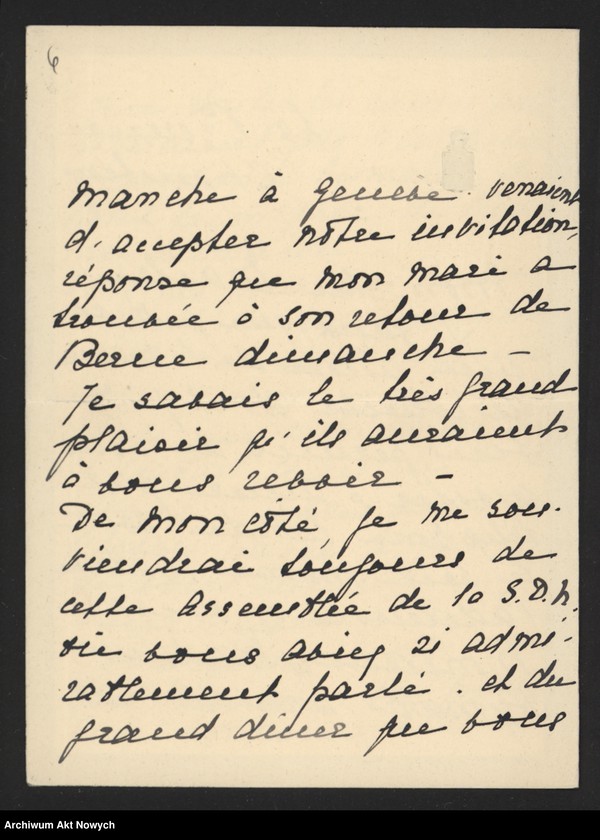 6
manche à Genève. venaient
d'accepter nôtre invitation,
réponse que mon mari a
trouvée à son retour de
Berne dimanche –
Je savais le très grand
plaisir qu'ils auraient
à vous revoir –
De mon côté, je me sou-
viendrai toujours de
cette Assemblée de la S.D.N.
où vous aviez si admi-
rablement parlé. et du
grand dîner que vous
Archiwum Akt Nowych